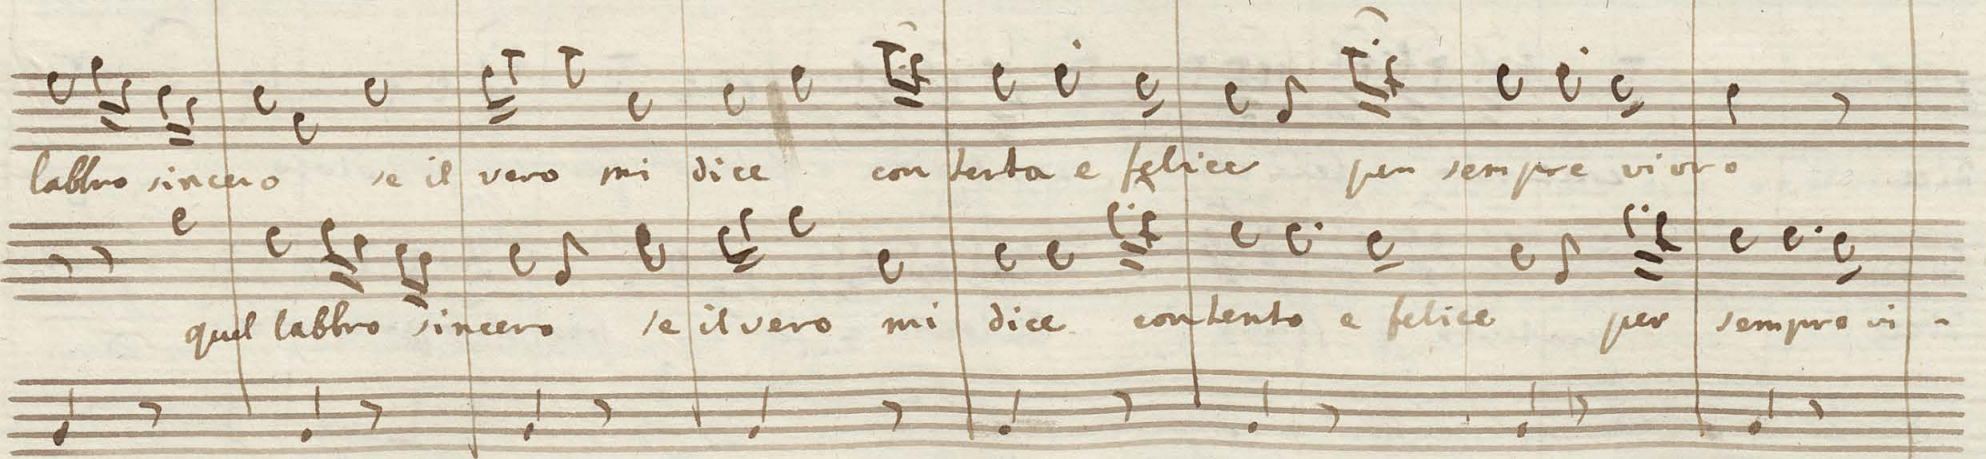 labbro sincero se il vero mi dice contenta e felice per sempre vivro
quel labbro sincero se il vero mi dice contento e felice per sempre vi -